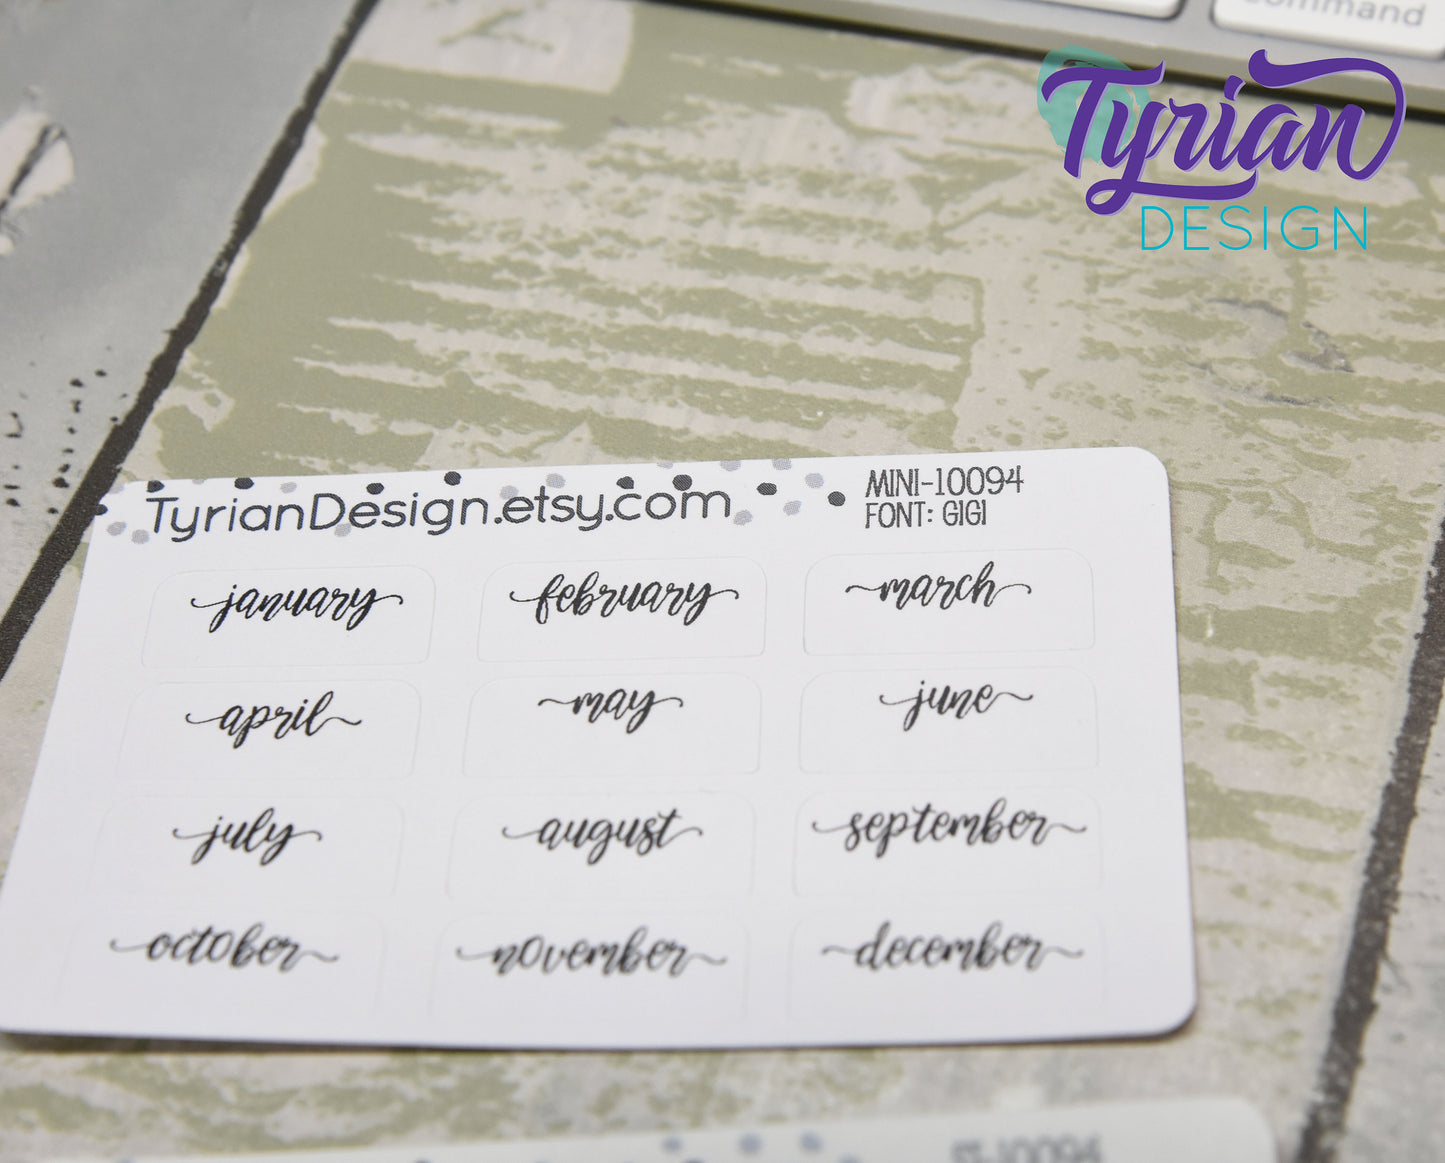 command
Tyrian
DESIGN
TyrianDesign.etsy.com
MINI-10094
FONT: GIGI
january
february
march
april
may
june
july
august
september
october
november
december
ST-10094